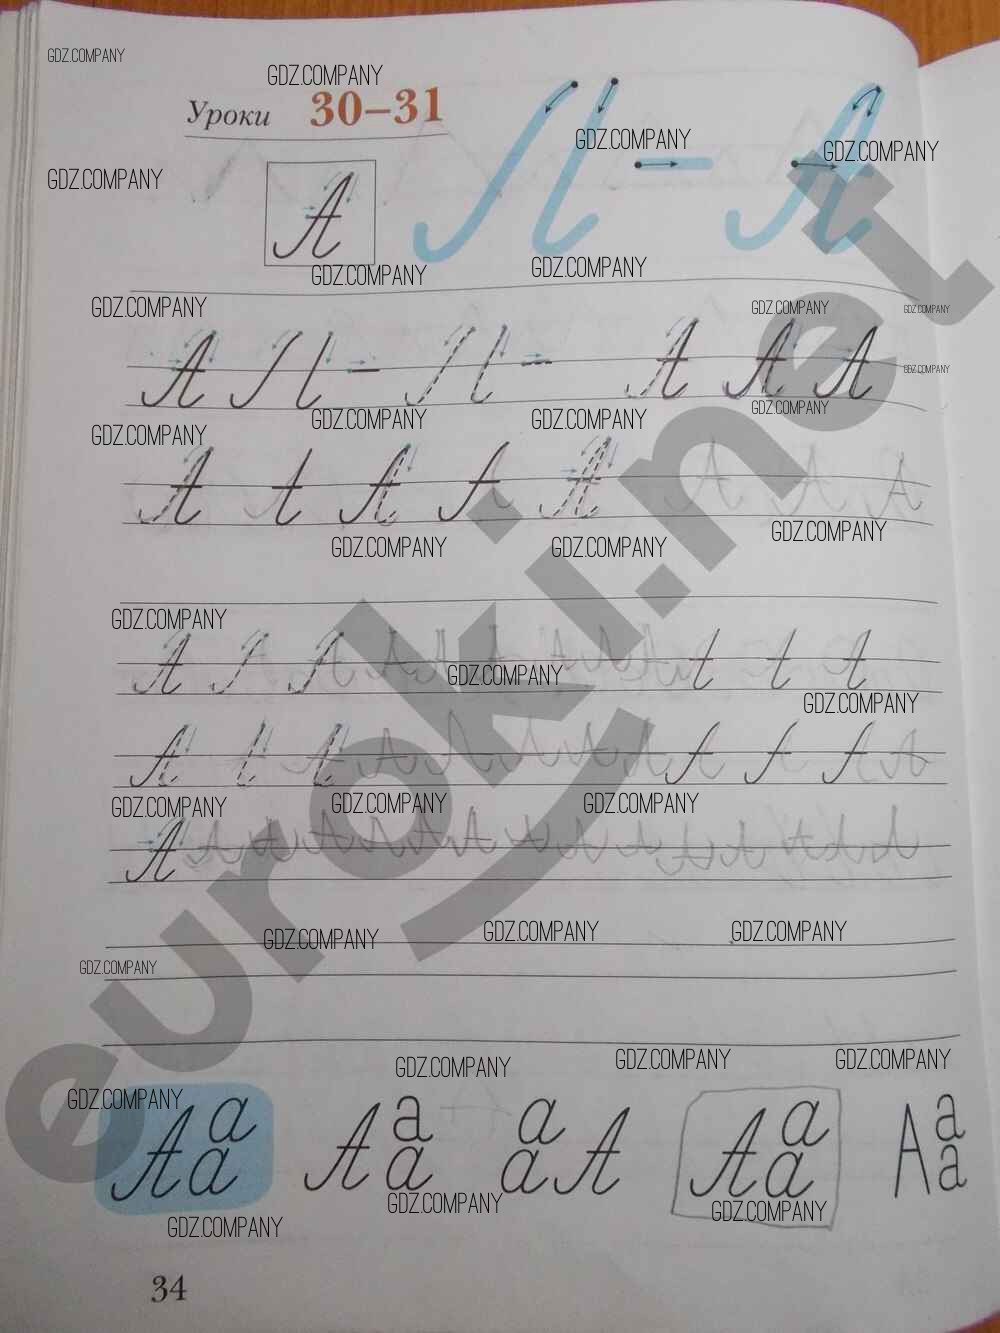 GDZ.COMPANY
GDZ.COMPANY
Уроки 30–31
GDZ.COMPANY GDZ.COMPANY
GDZ.COMPANY
А
GDZ.COMPANY GDZ.COMPANY
GDZ.COMPANY GDZ.COMPANY GDZ.COMPANY
А А А А
GDZ.COMPANY
GDZ.COMPANY GDZ.COMPANY GDZ.COMPANY
GDZ.COMPANY
А А А
GDZ.COMPANY GDZ.COMPANY GDZ.COMPANY
GDZ.COMPANY
А
GDZ.COMPANY
GDZ.COMPANY
А
GDZ.COMPANY GDZ.COMPANY GDZ.COMPANY
А
GDZ.COMPANY GDZ.COMPANY GDZ.COMPANY
GDZ.COMPANY
GDZ.COMPANY GDZ.COMPANY GDZ.COMPANY
GDZ.COMPANY
а а а а а
Аа Аа аА Аа Аа
GDZ.COMPANY GDZ.COMPANY GDZ.COMPANY
34
euroki.net